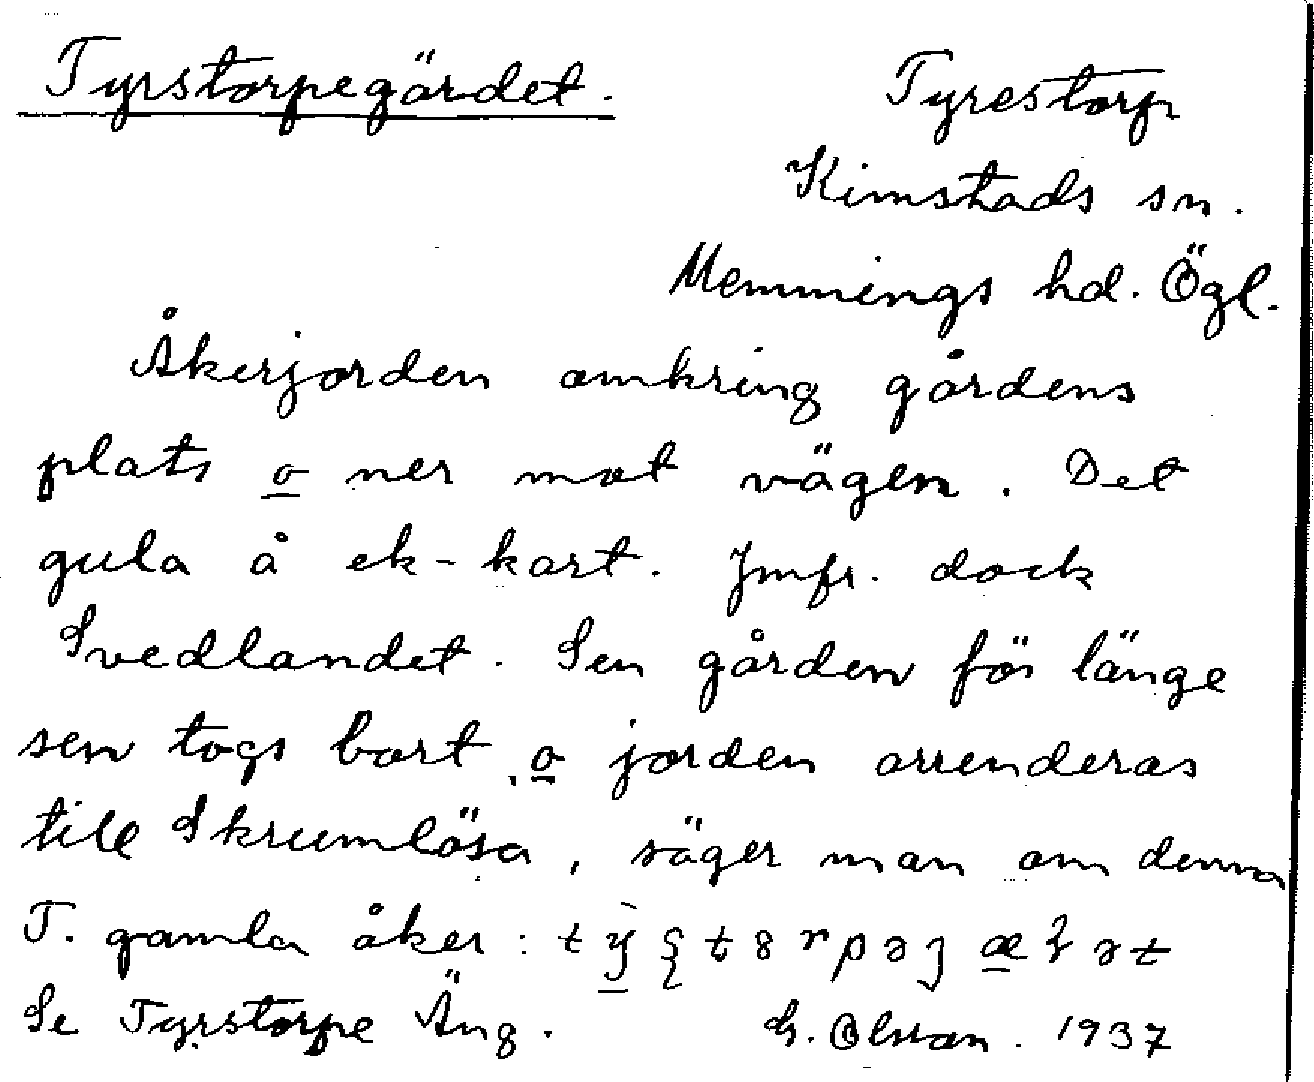 Tyrstorpegärdet.
Tyrestorp
Kimstads sn.
Memmings hd. Ögl.
Åkerjorden omkring gårdens
plats o ner mot vägen. Det
gula å ek-kart. Jmfr. dock
Svedlandet. Sen gården för länge
sen togs bort, o jorden arrenderas
till Skrumlösa, säger man om denna
T. gamla åker:
Se Tyrstorpe Äng. G. Olsson. 1937